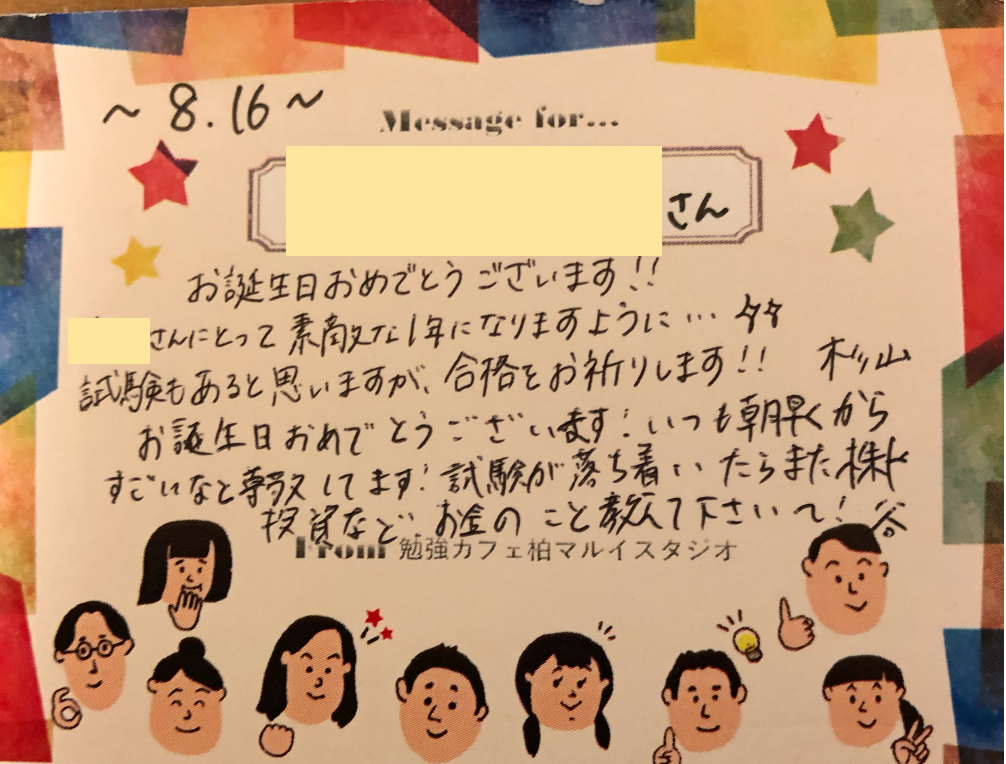 ~8.16~
Message for...
さん
お誕生日おめでとうございます!!
さんにとって素敵な1年になりますように…
試験もあると思いますが、合格をお祈りします!! 杉山
お誕生日おめでとうございます!いつも朝早くから
すごいなと尊敬してます!試験が落ち着いたらまた株や
投資など、お金のこと教えて下さいね! 谷
From 勉強カフェ柏マルイスタジオ